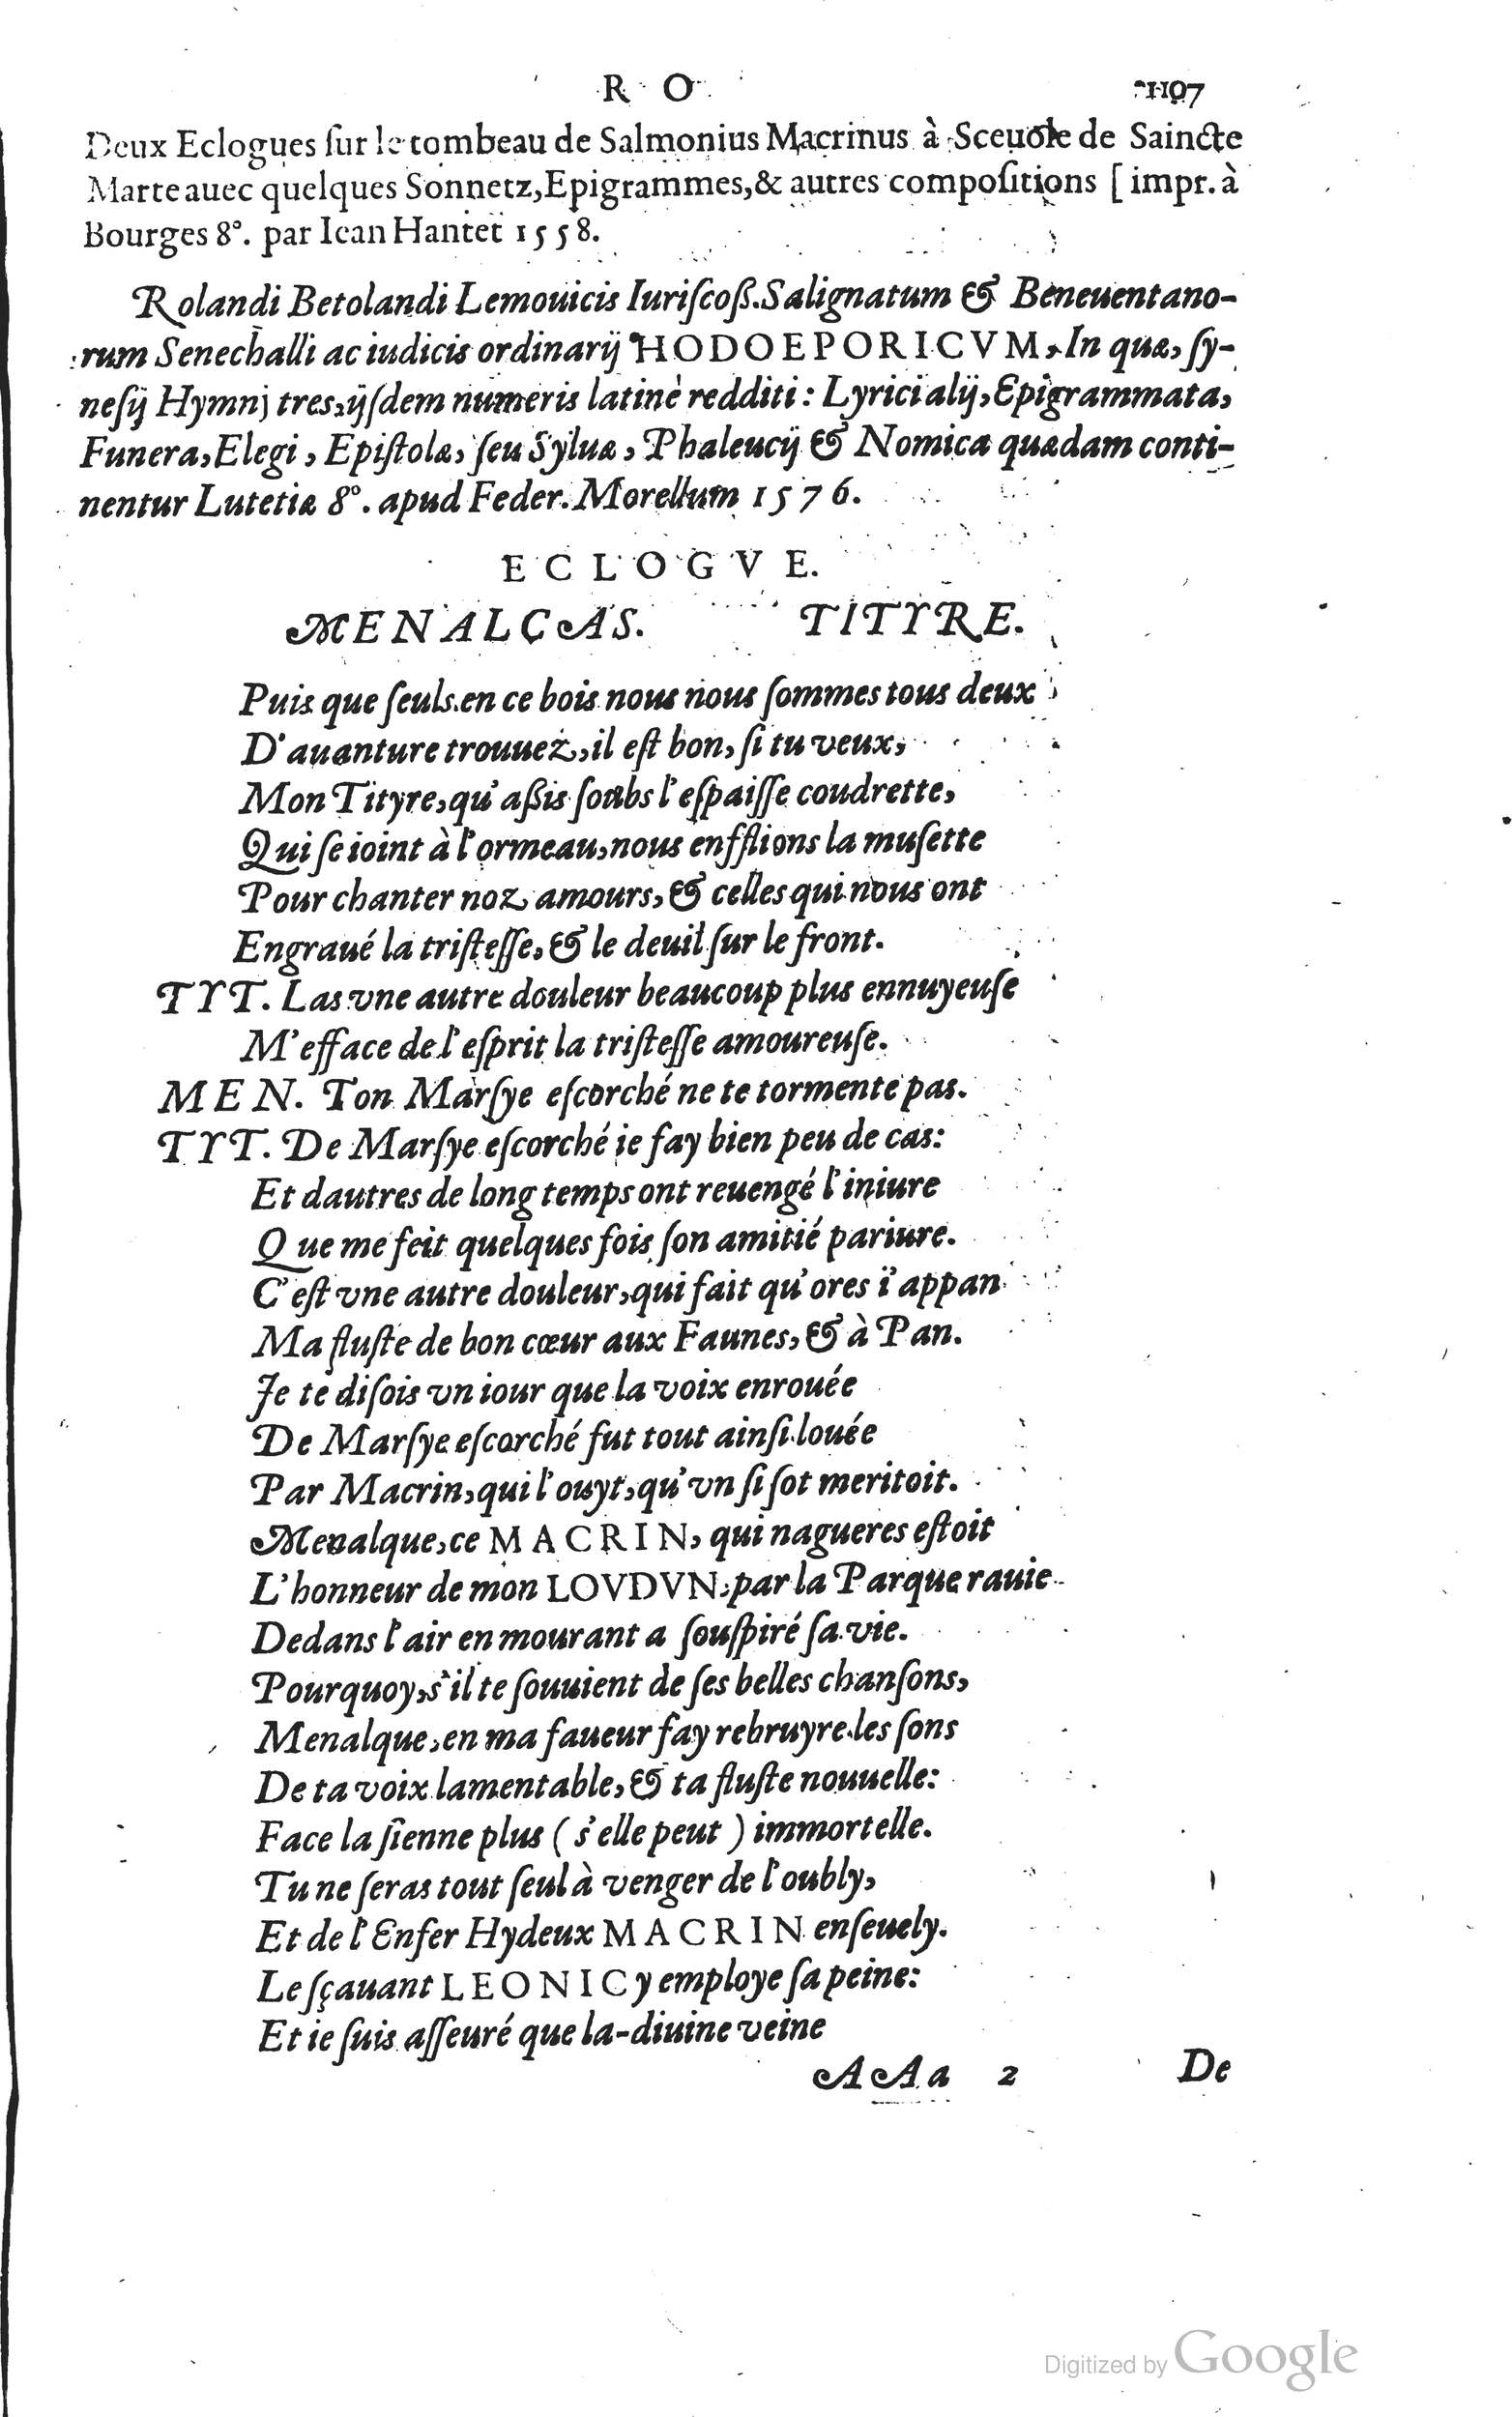 R O 1107
Deux Eclogues ſur le tombeau de Salmonius Macrinus à Sceuole de Saincte
Marte auec quelques Sonnetz, Epigrammes, & autres compoſitions [ impr. à
Bourges 8°. par Iean Hantet 1558.
Rolandi Betolandi Lemouicis Iuriſcoß. Salignatum & Beneuentano-
rum Senechalli ac iudicis ordinarij HODOEPORICVM, In quæ, ſy-
neſij Hymni tres, ijſdem numeris latinè redditi : Lyrici alij, Epigrammata,
Funera, Elegi, Epiſtolæ, ſeu Syluæ, Phaleucij & Nomica quædam conti-
nentur Lutetiæ 8°. apud Feder. Morellum 1576.
ECLOGVE.
MENALCAS. TITYRE.
Puis que ſeuls en ce bois nous nous ſommes tous deux
D'auanture trouuez, il eſt bon, ſi tu veux,
Mon Tityre, qu'aßis ſoubs l'eſpaiſſe coudrette,
Qui ſe ioint à l'ormeau, nous enfflions la muſette
Pour chanter noz amours, & celles qui nous ont
Engraué la triſteſſe, & le deuil ſur le front.
TYT. Las vne autre douleur beaucoup plus ennuyeuſe
M'efface de l'eſprit la triſteſſe amoureuſe.
MEN. Ton Marſye eſcorché ne te tormente pas.
TYT. De Marſye eſcorché ie fay bien peu de cas:
Et dautres de long temps ont reuengé l'iniure
Que me feit quelques fois ſon amitié pariure.
C'eſt vne autre douleur, qui fait qu'ores i'appan
Ma fluſte de bon cœur aux Faunes, & à Pan.
Je te diſois vn iour que la voix enrouée
De Marſye eſcorché fut tout ainſi louée
Par Macrin, qui l'ouyt, qu'vn ſi ſot meritoit.
Menalque, ce MACRIN, qui nagueres eſtoit
L'honneur de mon LOVDVN, par la Parque rauie
Dedans l'air en mourant a ſouſpiré ſa vie.
Pourquoy, s'il te ſouuient de ſes belles chanſons,
Menalque, en ma faueur fay rebruyre les ſons
De ta voix lamentable, & ta fluſte nouuelle:
Face la ſienne plus ( s'elle peut ) immortelle.
Tu ne ſeras tout ſeul à venger de l'oubly,
Et de l'Enfer Hydeux MACRIN enſeuely.
Le ſçauant LEONIC y employe ſa peine:
Et ie ſuis aſſeuré que la-diuine veine
AAa 2 De
Digitized by Google